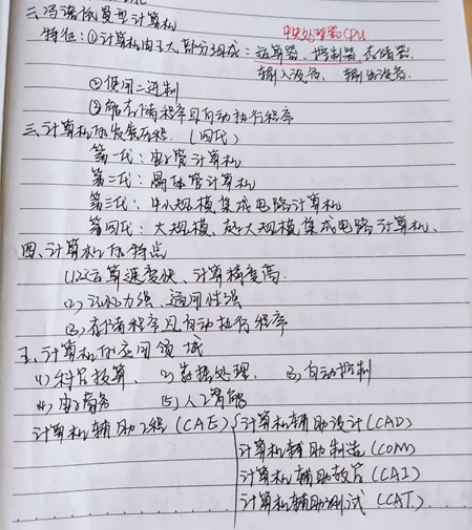 二、冯诺依曼型计算机
中央处理器CPU
特征：①计算机由五大部分组成：运算器、控制器、存储器、
输入设备、输出设备.
②使用二进制
③能存储程序且自动执行程序
三、计算机的发展历程.（四代）
第一代：电子管计算机
第二代：晶体管计算机
第三代：中小规模集成电路计算机
第四代：大规模、超大规模集成电路计算机、
四、计算机的特点
(1)运算速度快、计算精度高.
(2)记忆力强、通用性强
(3)存储程序且自动执行程序
五、计算机的应用领域
(1)科学计算、 (2)数据处理、 (3)自动控制
(4)电子商务 (5)人工智能
计算机辅助工程(CAE) 计算机辅助设计(CAD)
计算机辅助制造(COM)
计算机辅助教育(CAI)
计算机辅助测试(CAT).